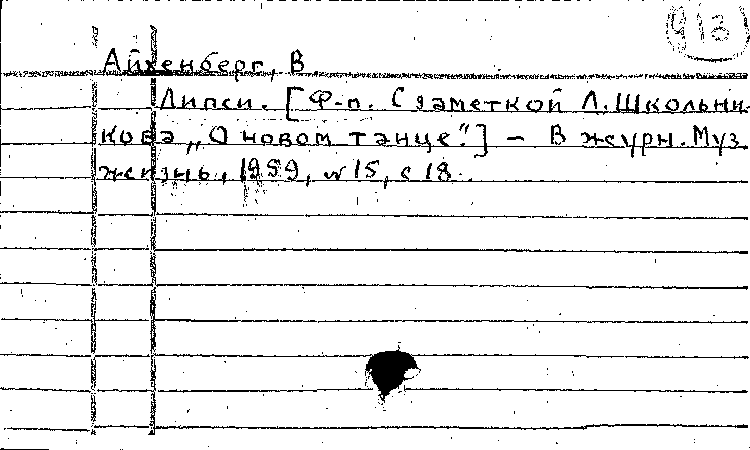 Айхенберг, В
Липси. [Ф-п. С заметкой Л. Школьни-
кова „О новом танце".] – В журн. Муз.
жизнь, 1959, № 15, с 18.